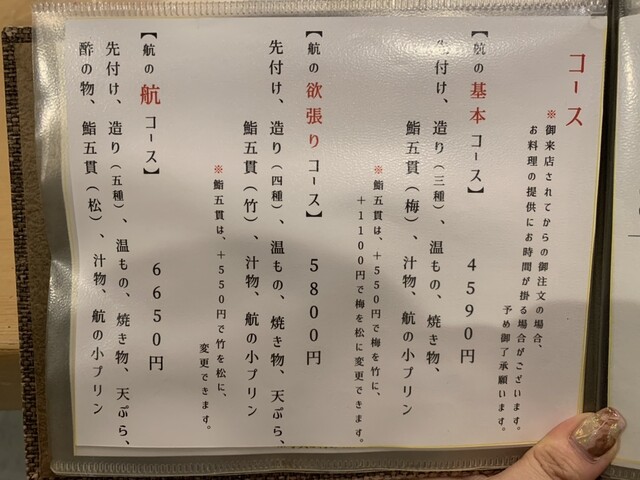 コース
※御来店されてからの御注文の場合、
お料理の提供にお時間が掛る場合がございます。
予め御了承願います。
【航の 基本 コース】 4590円
先付け、造り（三種）、温もの、焼き物、
鮨五貫（梅）、汁物、航の小プリン
※鮨五貫は、＋550円で梅を竹に、
＋1100円で梅を松に変更できます。
【航の 欲張り コース】 5800円
先付け、造り（四種）、温もの、焼き物、天ぷら、
鮨五貫（竹）、汁物、航の小プリン
※鮨五貫は、＋550円で竹を松に、
変更できます。
【航の 航 コース】 6650円
先付け、造り（五種）、温もの、焼き物、天ぷら、
酢の物、鮨五貫（松）、汁物、航の小プリン